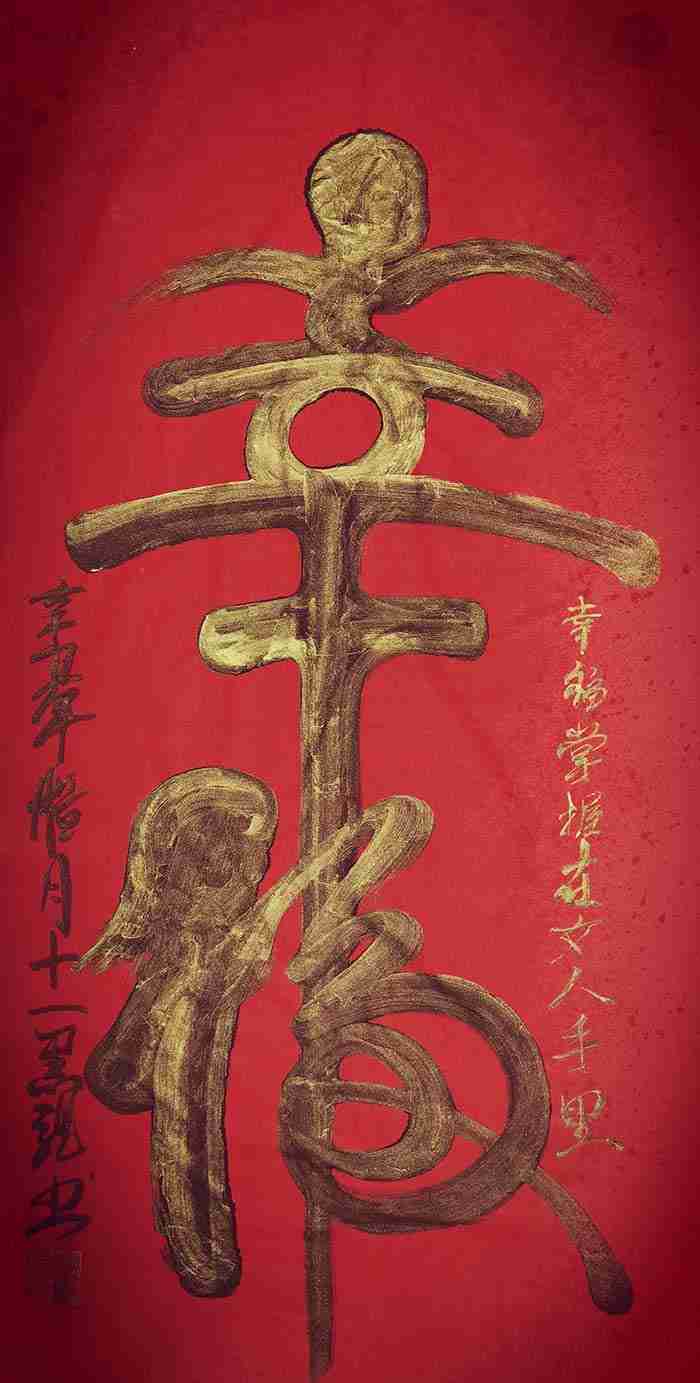 幸福掌握在文人手里
幸福
辛丑年腊月十一墨书